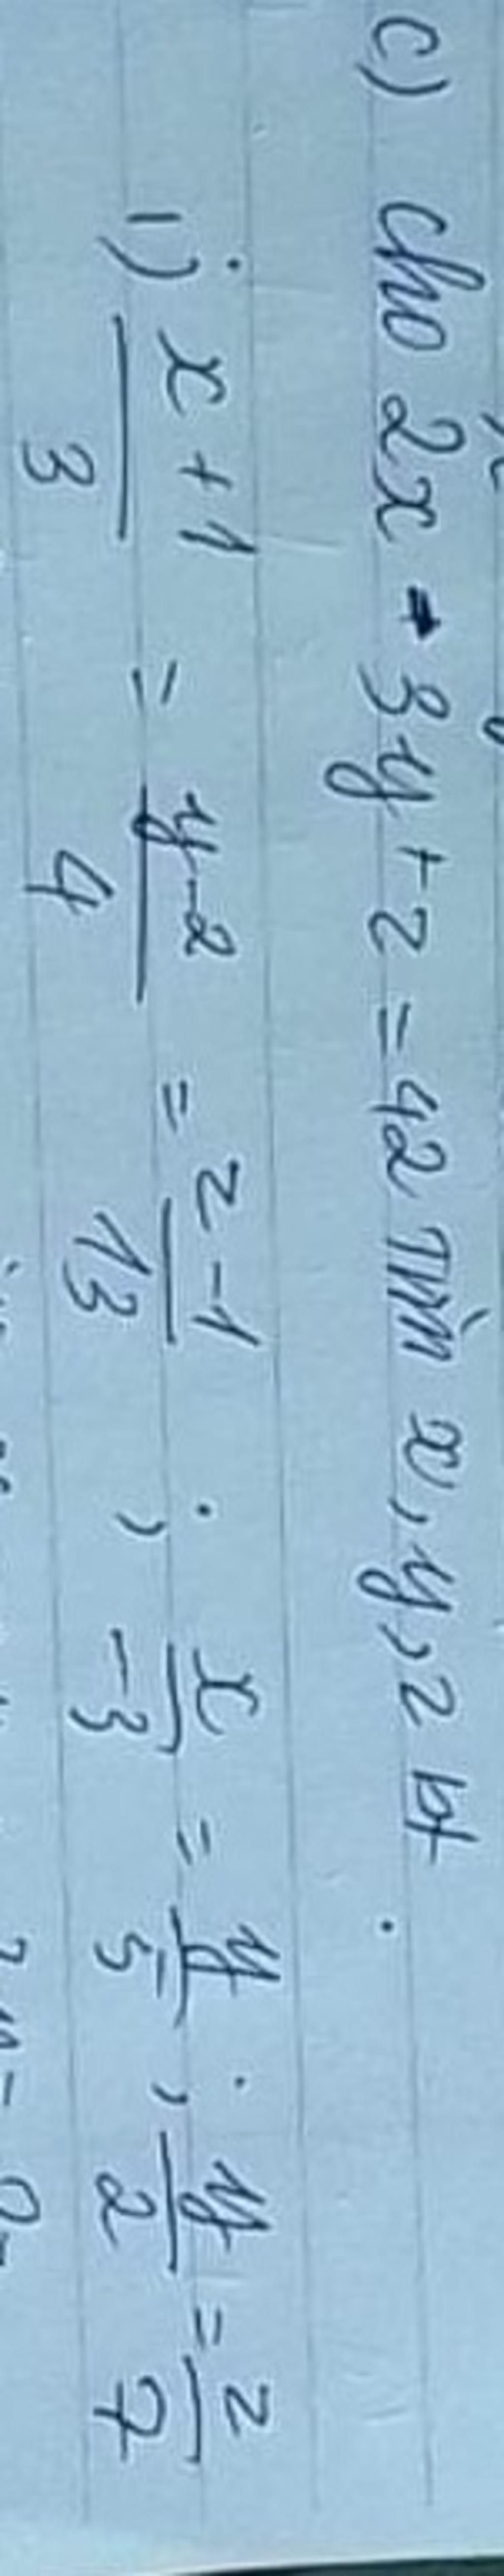 c) cho 2x - 3y + z = 42 Tìm x, y, z bt.
i) \frac{x+1}{3} = \frac{y-2}{4} = \frac{z-1}{13} ; \frac{x}{-3} = \frac{y}{5} ; \frac{y}{2} = \frac{z}{7}